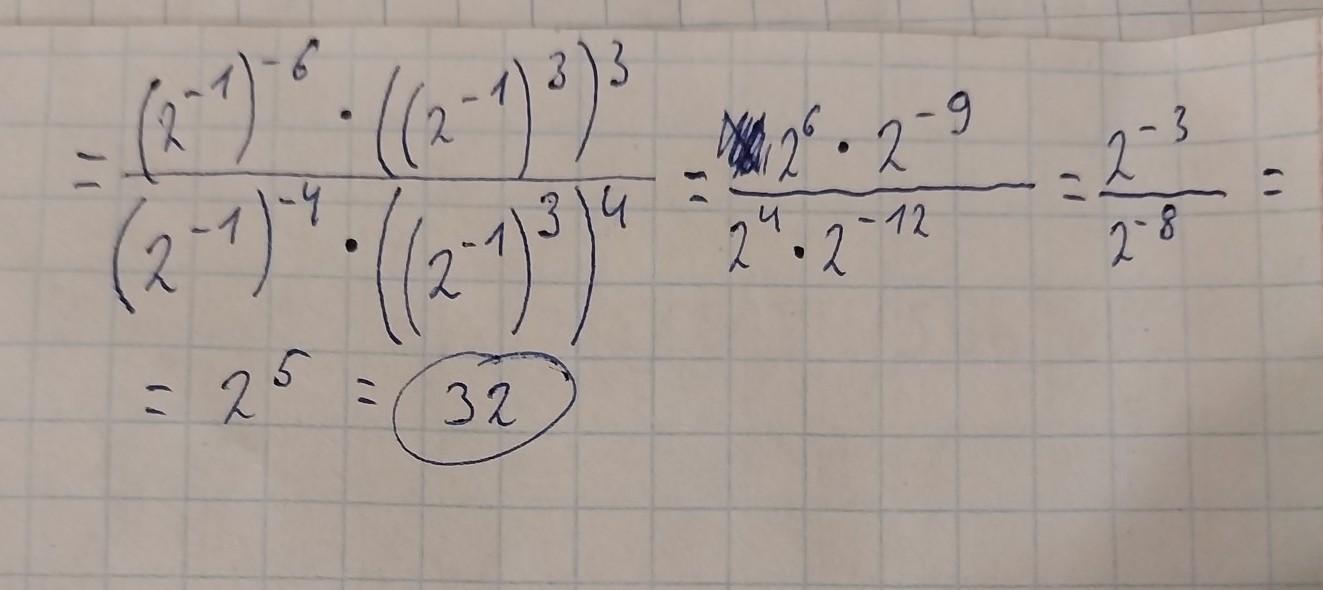 = \frac{(2^{-1})^{-6} \cdot ((2^{-1})^3)^3}{(2^{-1})^{-4} \cdot ((2^{-1})^3)^4} = \frac{2^6 \cdot 2^{-9}}{2^4 \cdot 2^{-12}} = \frac{2^{-3}}{2^{-8}} =
= 2^5 = 32